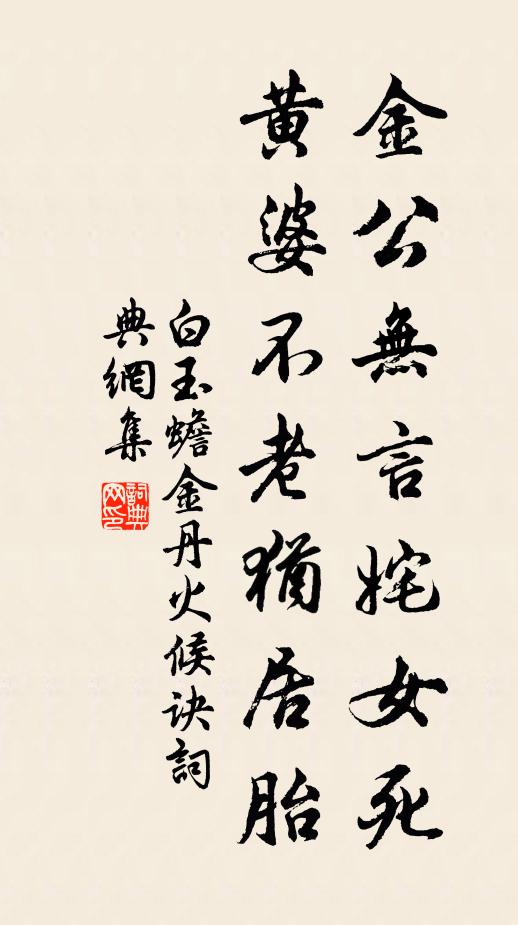 金公無言姹女死
黃婆不老猶居胎
白玉蟾金丹火候诀詞
典網集
詞典
网印